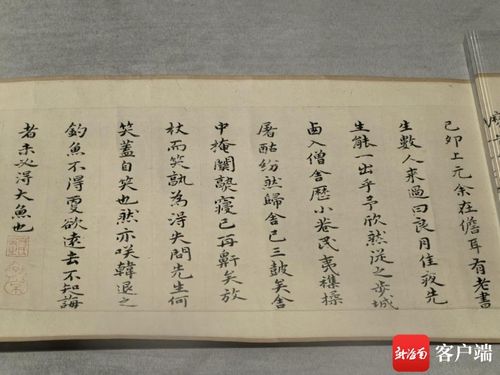 己卯上元余在儋耳有老書
生數人來過曰良月佳夜先
生能一出乎予欣然從之步城
西入僧舍歷小巷民夷襍揉
屠酤紛然歸舍已三鼓矣舍
中掩關熟寢已再鼾矣放
杖而笑孰為得失問先生何
笑蓋自笑也然亦咲韓退之
釣魚不得更欲遠去不知海
者未必得大魚也
新海南 客户端